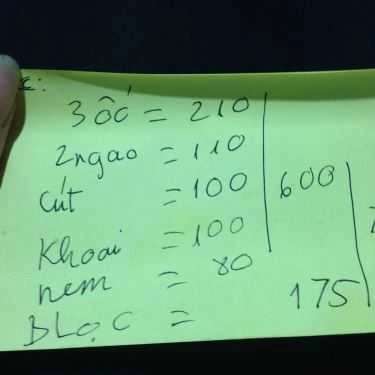 3 ốc = 210
2 ngao = 110
cút = 100
600
Khoai = 100
nem = 80
BLạC =
175